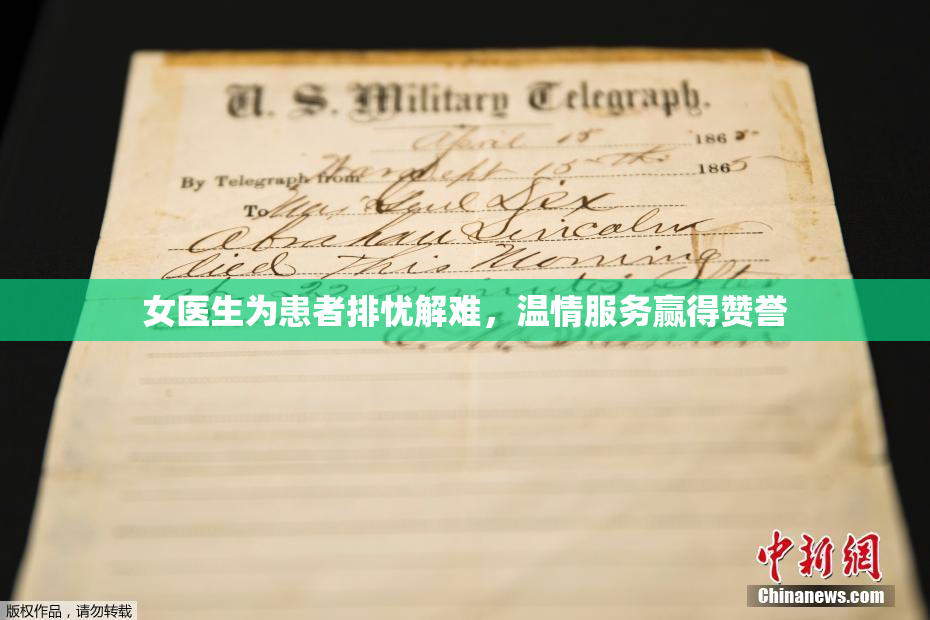 U. S. Military Telegraph.
April 15 1865
By Telegraph from War Dept 15th 1865
To Maj Genl Dix
Abraham Lincoln
died This Morning
at 22 minutes after
女医生为患者排忧解难，温情服务赢得赞誉
E. M. Stanton
中新网
Chinanews.com
版权作品，请勿转载